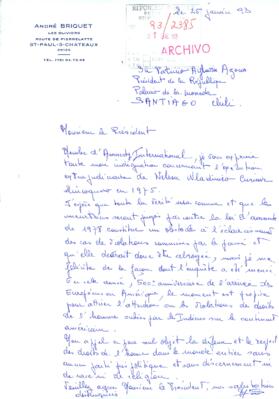 ANDRÉ BRIQUET
LES OLIVIERS
ROUTE DE PIERRELATTE
ST-PAUL-3-CHATEAUX
le 25 janvier 93
93/2385
ARCHIVO
Président de la République
Palais de la moneda
SANTIAGO Chili
Monsieur le Président
Membre d'Amnesty International, je vous exprime
toute mon indignation concernant l'exécution
extrajudiciaire de Nelson Wladimiro Curiñir
Lincoqueo en 1973.
J'espère que toute la vérité sera connue et que les
meurtriers seront jugés par votre loi d'amnistie
de 1978 constitue un obstacle à l'éclaircissement
des cas de violations commises par le passé et
qu'elle devrait donc être abrogée, mais je me
félicite de la façon dont l'enquête a été menée
En cette année, 500e anniversaire de l'arrivée des
Européens en Amérique, le moment est propice
pour attirer l'attention sur les violations des droits
de l'homme subies par les Indiens sur le continent
américain.
Mon appel a pour seul objet la défense et le respect
des droits de l'homme dans le monde entier sans
aucun parti pris politique et sans discernement
de race ni de religion.
Veuillez agréer Monsieur le Président, mes salutations
distinguées